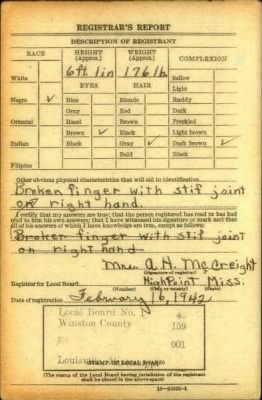 REGISTRAR'S REPORT
DESCRIPTION OF REGISTRANT
RACE
HEIGHT (Approx.)
WEIGHT (Approx.)
COMPLEXION
White
6 ft. 1 in
176 lb
Sallow
EYES
HAIR
Light
Negro ✓
Blue
Blonde
Ruddy
Gray
Red
Dark
Oriental
Hazel
Brown
Freckled
Brown ✓
Black
Light brown
Indian
Black
Gray ✓
Dark brown ✓
Bald
Black
Filipino
Other obvious physical characteristics that will aid in identification
Broken finger with stif joint
on right hand.
I certify that my answers are true; that the person registered has read or has had
read to him his own answers; that I have witnessed his signature or mark and that
all of his answers of which I have knowledge are true, except as follows:
Broken finger with stif joint
on right hand
Mrs. A. H. McCreight
(Signature of registrar)
Registrar for Local Board
High Point Miss.
(Number) (City or county) (State)
Date of registration February 16, 1942
Local Board No. 4
Winston County 159
001
STAMP OF LOCAL BOARD
(The stamp of the Local Board having jurisdiction of the registrant
shall be placed in the above space)